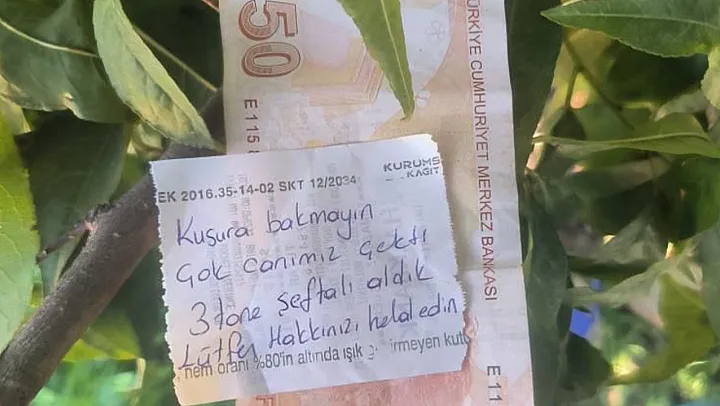 50
E 115
TÜRKİYE CUMHURİYET MERKEZ BANKASI
E 11
KURUMS
KAGIT
EK 2016.35-14-02 SKT 12/2034
Kusura bakmayın
Çok canımız çekti
3 tane şeftali aldık
Lütfen Hakkınızı helal edin
nem oranı %80'in altında ışık irmeyen kutu